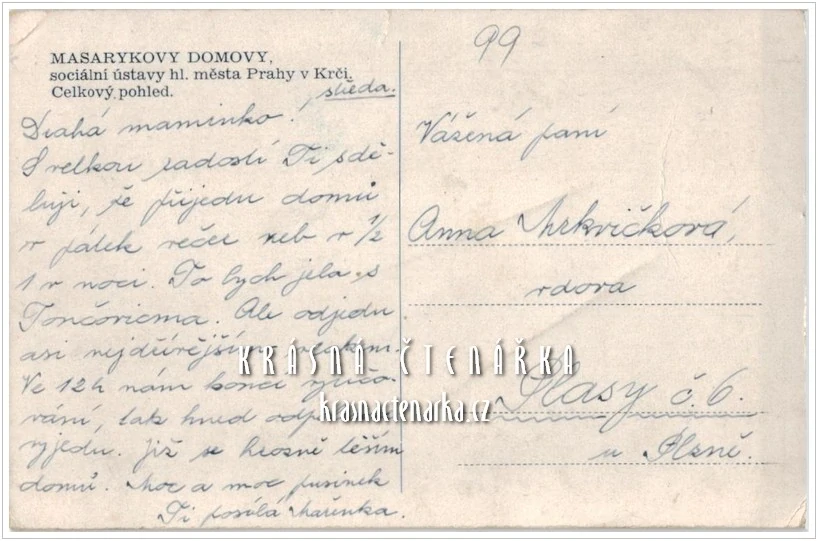 99
MASARYKOVY DOMOVY,
sociální ústavy hl. města Prahy v Krči.
Celkový pohled.
středa.
Drahá maminko!
S velkou radostí Ti sdě-
luji, že přijedu domů
v pátek večer neb v 1/2
1 v noci. To bych jela s
Tončovicma. Ale odjedu
asi nejdřívějším vlakem
Ve 12h nám končí vyučo-
vání, tak hned odpo
vyjedu. Již se hrosně těším
domů. Moc a moc pusinek
Ti posílá Mařenka.
Vážená paní
Anna Mrkvičková,
vdova
Plasy č. 6.
u Plzně.
KRÁSNÁ ČTENÁŘKA
krasnactenarka.cz